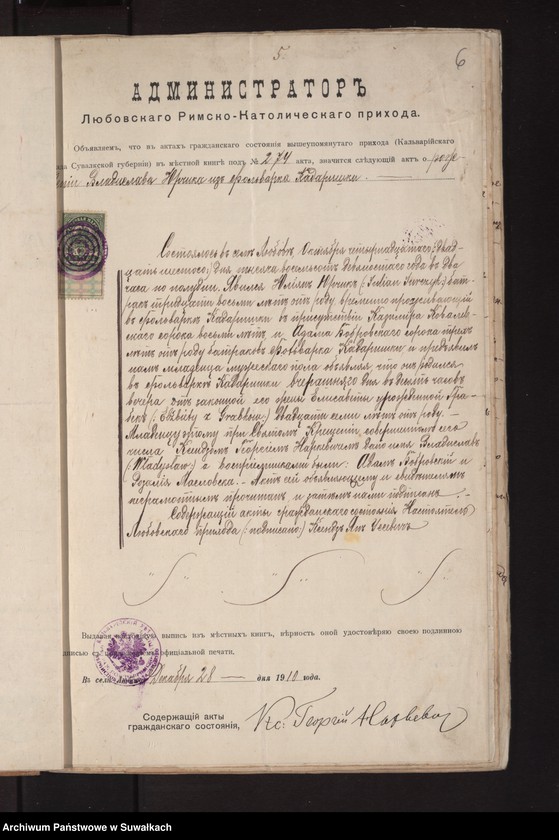 5
6
АДМИНИСТРАТОРЪ
Любовскаго Римско-Католическаго прихода.
Объявляемъ, что въ актахъ гражданскаго состоянія вышеупомянутаго прихода (Кальварійскаго
Сувалкской губерніи) въ мѣстной книгѣ подъ № 274 акта, значится слѣдующій актъ о рожде-
ніи Владислава Юрчика изъ фольварка Кадаришки
Состоялось въ селѣ Любовѣ, Октября четырнадцатаго / двад-
цать шестого / дня тысяча восемьсотъ года въ два
часа по полудни. Явился Юліянъ Юрчикъ (Julian Jurczyk) бат-
ракъ тридцати восьми лѣтъ отъ роду временно проживающій
въ фольваркѣ Кадаришки въ присутствіи Казиміра Коваль-
скаго сорока восьми лѣтъ и Адама Бобровскаго сорока трехъ
лѣтъ отъ роду батраковъ фольварка Кадаришки и предъявилъ
намъ младенца мужескаго пола объявляя, что онъ родился
въ фольваркѣ Кадаришки вчерашняго дня въ десять часовъ
вечера отъ законной его жены Елисаветы урожденной Гра-
(Elżbiety z Grabków) двадцати семи лѣтъ отъ роду. —
Младенцу этому при Святомъ Крещеніи совершенномъ сего
числа Ксендзомъ Георгіемъ Наркевичемъ дано имя Владиславъ
(Władysław) а воспріемниками были: Адамъ Бобровскій и
Розалія Масловска. — Актъ сей объявляющему и свидѣтелямъ
неграмотнымъ прочитанъ и затѣмъ нами подписанъ. —
Содержащій акты гражданскаго состоянія Настоятель
Любовскаго прихода (: подписано :) Ксендзъ
Выдавая настоящую выпись изъ мѣстныхъ книгъ, вѣрность оной удостовѣряю своею подлинною
подписью съ официальной печати.
Въ селѣ Декабря 28 — дня 1910 года.
Содержащій акты
гражданскаго состоянія,
Кс. Георгій
Archiwum Państwowe w Suwałkach